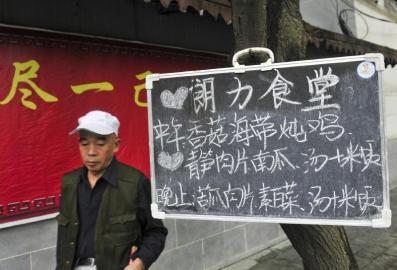 尽一己
朗力食堂
中午:香菇海带炖鸡、
静肉片南瓜、汤+米饭
晚上:瓜肉片素菜、汤+米饭